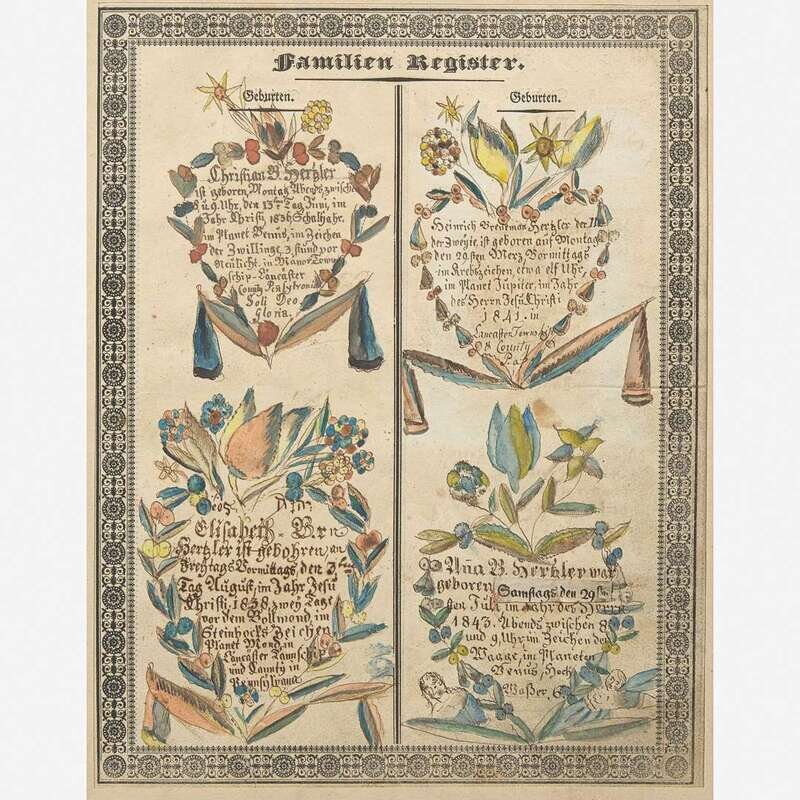 Familien Register.
Geburten.
Christian B. Hertzler
ist geboren, Montag Abends zwische
8 u 9. Uhr, den 13ten Tag Juni, im
Jahr Christi 1836 Schaltjahr.
im Planet Venus, im Zeichen
der Zwillinge, 3 stund vor
Neulicht. in Manor Town
schip-Lancaster
County Pensylvania
Soli Deo
Gloria.
Elisabeth B
Hertzler ist gebohren, an
Freytags Vormittags, den 3ten
Tag August, im Jahr Jesu
Christi, 1838, zwey Tage
vor dem Vollmond, in
Steinbocks Zeichen
Planet Mond, in
Lancaster Taunschip
und Caunty in
Pennsylvana
Geburten.
Heinrich Hertzler der
der Zweyte, ist geboren auf Montag
den 29sten Merz Vormittags
im Krebszeichen, etwa elf Uhr,
im Planet Jupiter, im Jahr
des Herrn Jesu Christi
1841. in
Lancaster Towns
& County
Pa.
Ana B. Hertzler war
geboren Samstags den 29sten
sten Juli im Jahr des Herrn
1843. Abends zwischen 8
und 9, Uhr im Zeichen der
Waage, im Planeten
Venus, Hoch
Waßer,